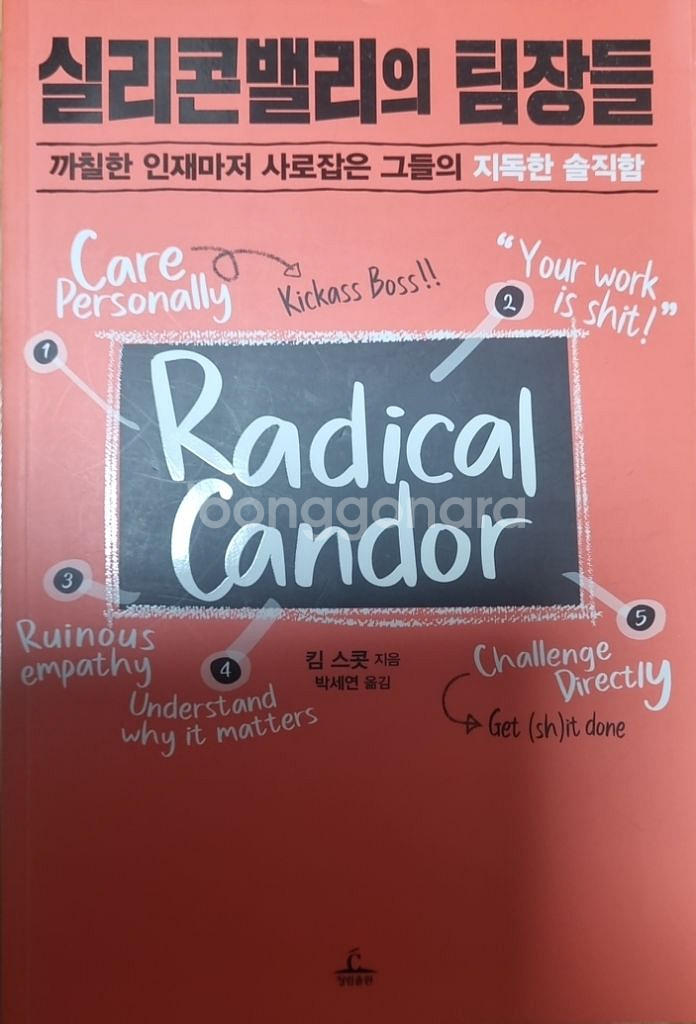 실리콘밸리의 팀장들
까칠한 인재마저 사로잡은 그들의 지독한 솔직함
Care
Personally
Kickass Boss!!
"Your work
is shit!"
1
2
Radical
Candor
joonggonara
3
Ruinous
empathy
4
Understand
why it matters
킴 스콧 지음
박세연 옮김
5
Challenge
Directly
Get (sh)it done
청림출판